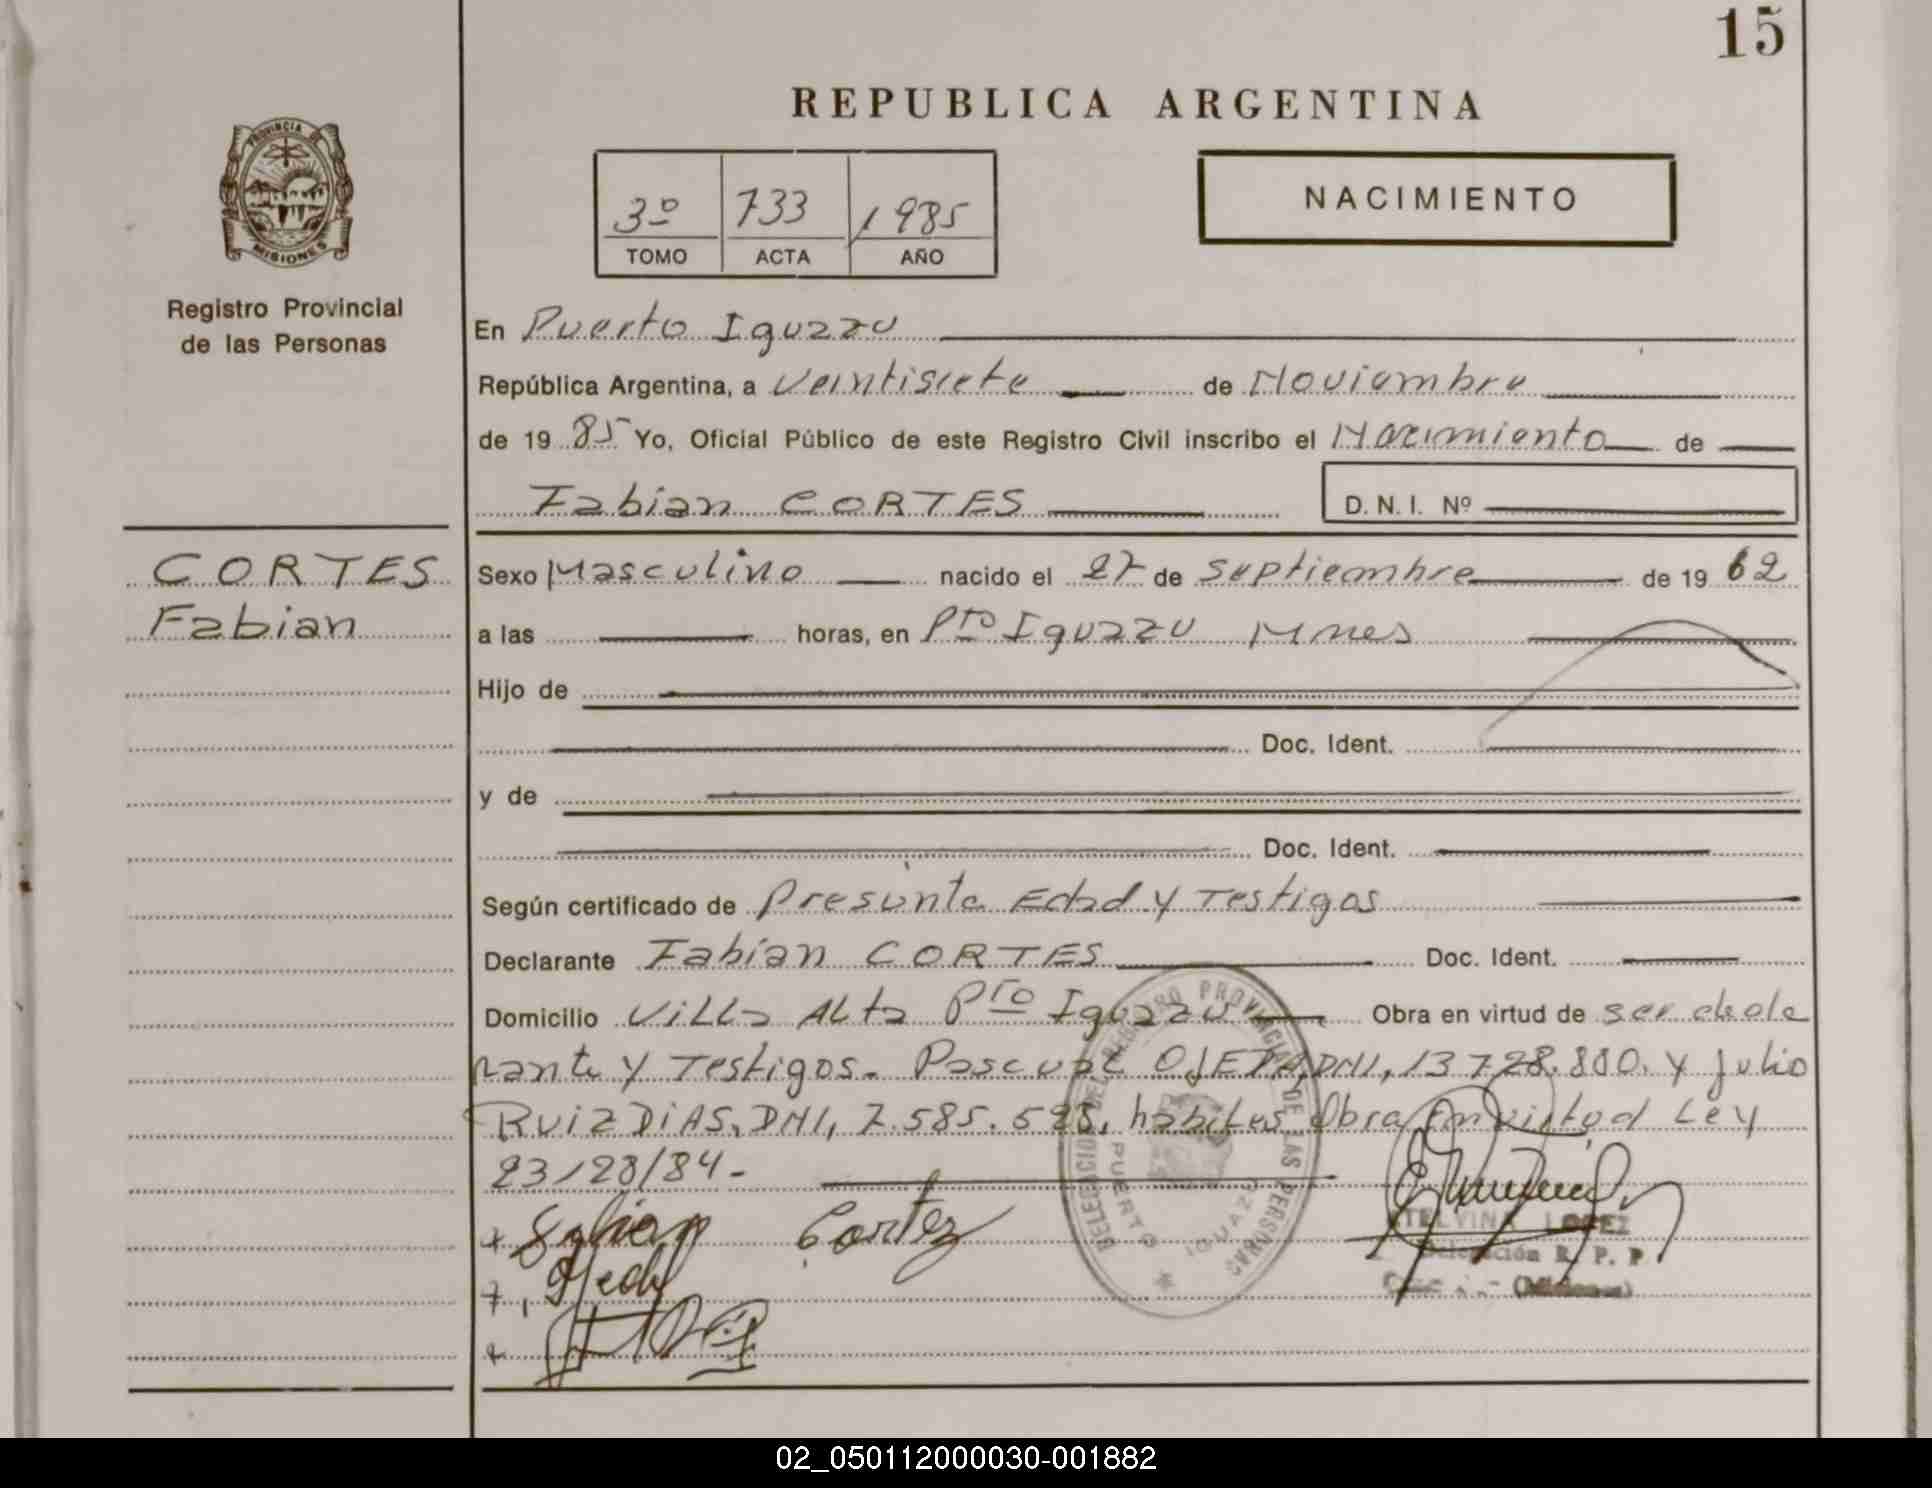 15
REPUBLICA ARGENTINA
PROVINCIA DE
MISIONES
Registro Provincial
de las Personas
3º 733 1985
TOMO ACTA AÑO
NACIMIENTO
En Puerto Iguazu
República Argentina, a veintisiete de Noviembre
de 19 85 Yo, Oficial Público de este Registro Civil inscribo el Nacimiento de
Fabian CORTES D.N.I. Nº
CORTES
Fabian
Sexo Masculino nacido el 27 de septiembre de 19 62
a las horas, en Pto Iguazu Mnes
Hijo de
Doc. Ident.
y de
Doc. Ident.
Según certificado de Presunta Edad y Testigos
Declarante Fabian CORTES Doc. Ident.
Domicilio Villa Alta Pto Iguazu Obra en virtud de ser decla
rante y Testigos. Pascual OJEDA, DNI, 13.728.880. y Julio
RUIZ DIAS, DNI, 7.585.598, habiles Obra En virtud Ley
23/28/84-
Fabian Cortez
DELEGACION DEL REGISTRO PROVINCIAL DE LAS PERSONAS
PUERTO IGUAZU
ETELVINA LOPEZ
Delegación R. P. P
(Misiones)
02_050112000030-001882